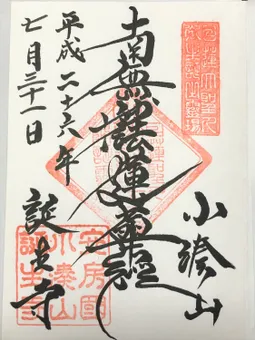 小湊山
南無妙法蓮華経
平成二十六年
七月三十一日
誕生寺
安房國
小湊山
誕生寺